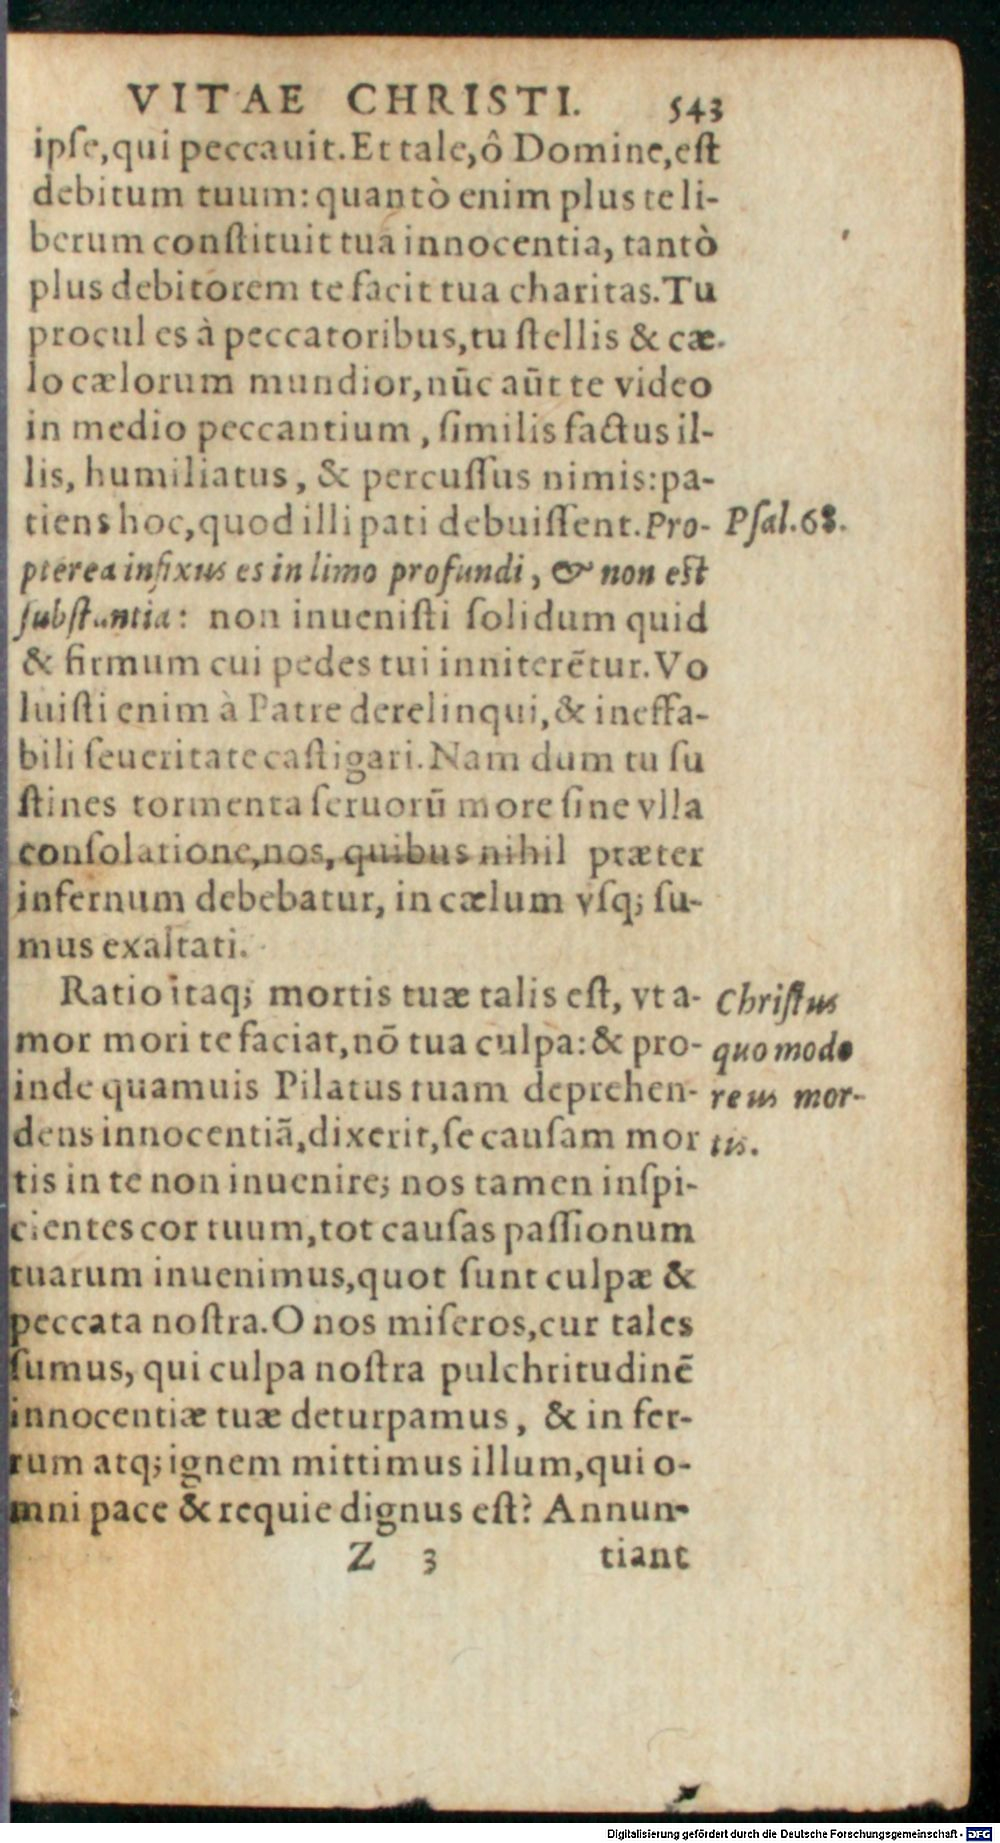 VITAE CHRISTI. 543
ipſe, qui peccauit. Et tale, ô Domine, eſt
debitum tuum: quantò enim plus te li-
berum conſtituit tua innocentia, tantò
plus debitorem te facit tua charitas. Tu
procul es à peccatoribus, tu ſtellis & cæ-
lo cælorum mundior, nūc aūt te video
in medio peccantium, ſimilis factus il-
lis, humiliatus, & percuſſus nimis: pa-
tiens hoc, quod illi pati debuiſſent. Pro-
Pſal. 68.
pterea infixus es in limo profundi, & non eſt
ſubſtantia: non inueniſti ſolidum quid
& firmum cui pedes tui inniterētur. Vo
luiſti enim à Patre derelinqui, & ineffa-
bili ſeueritate caſtigari. Nam dum tu ſu
ſtines tormenta ſeruorū more ſine vlla
conſolatione, nos, quibus nihil præter
infernum debebatur, in cælum vſq; ſu-
mus exaltati.
Ratio itaq; mortis tuæ talis eſt, vt a-
mor mori te faciat, nō tua culpa: & pro-
inde quamuis Pilatus tuam deprehen-
dens innocentiā, dixerit, ſe cauſam mor
Chriſtus
quomodo
reus mor-
tis.
tis in te non inuenire; nos tamen inſpi-
cientes cor tuum, tot cauſas paſſionum
tuarum inuenimus, quot ſunt culpæ &
peccata noſtra. O nos miſeros, cur tales
ſumus, qui culpa noſtra pulchritudinē
innocentiæ tuæ deturpamus, & in fer-
rum atq; ignem mittimus illum, qui o-
mni pace & requie dignus eſt? Annun-
Z 3 tiant
Digitalisierung gefördert durch die Deutsche Forschungsgemeinschaft - DFG